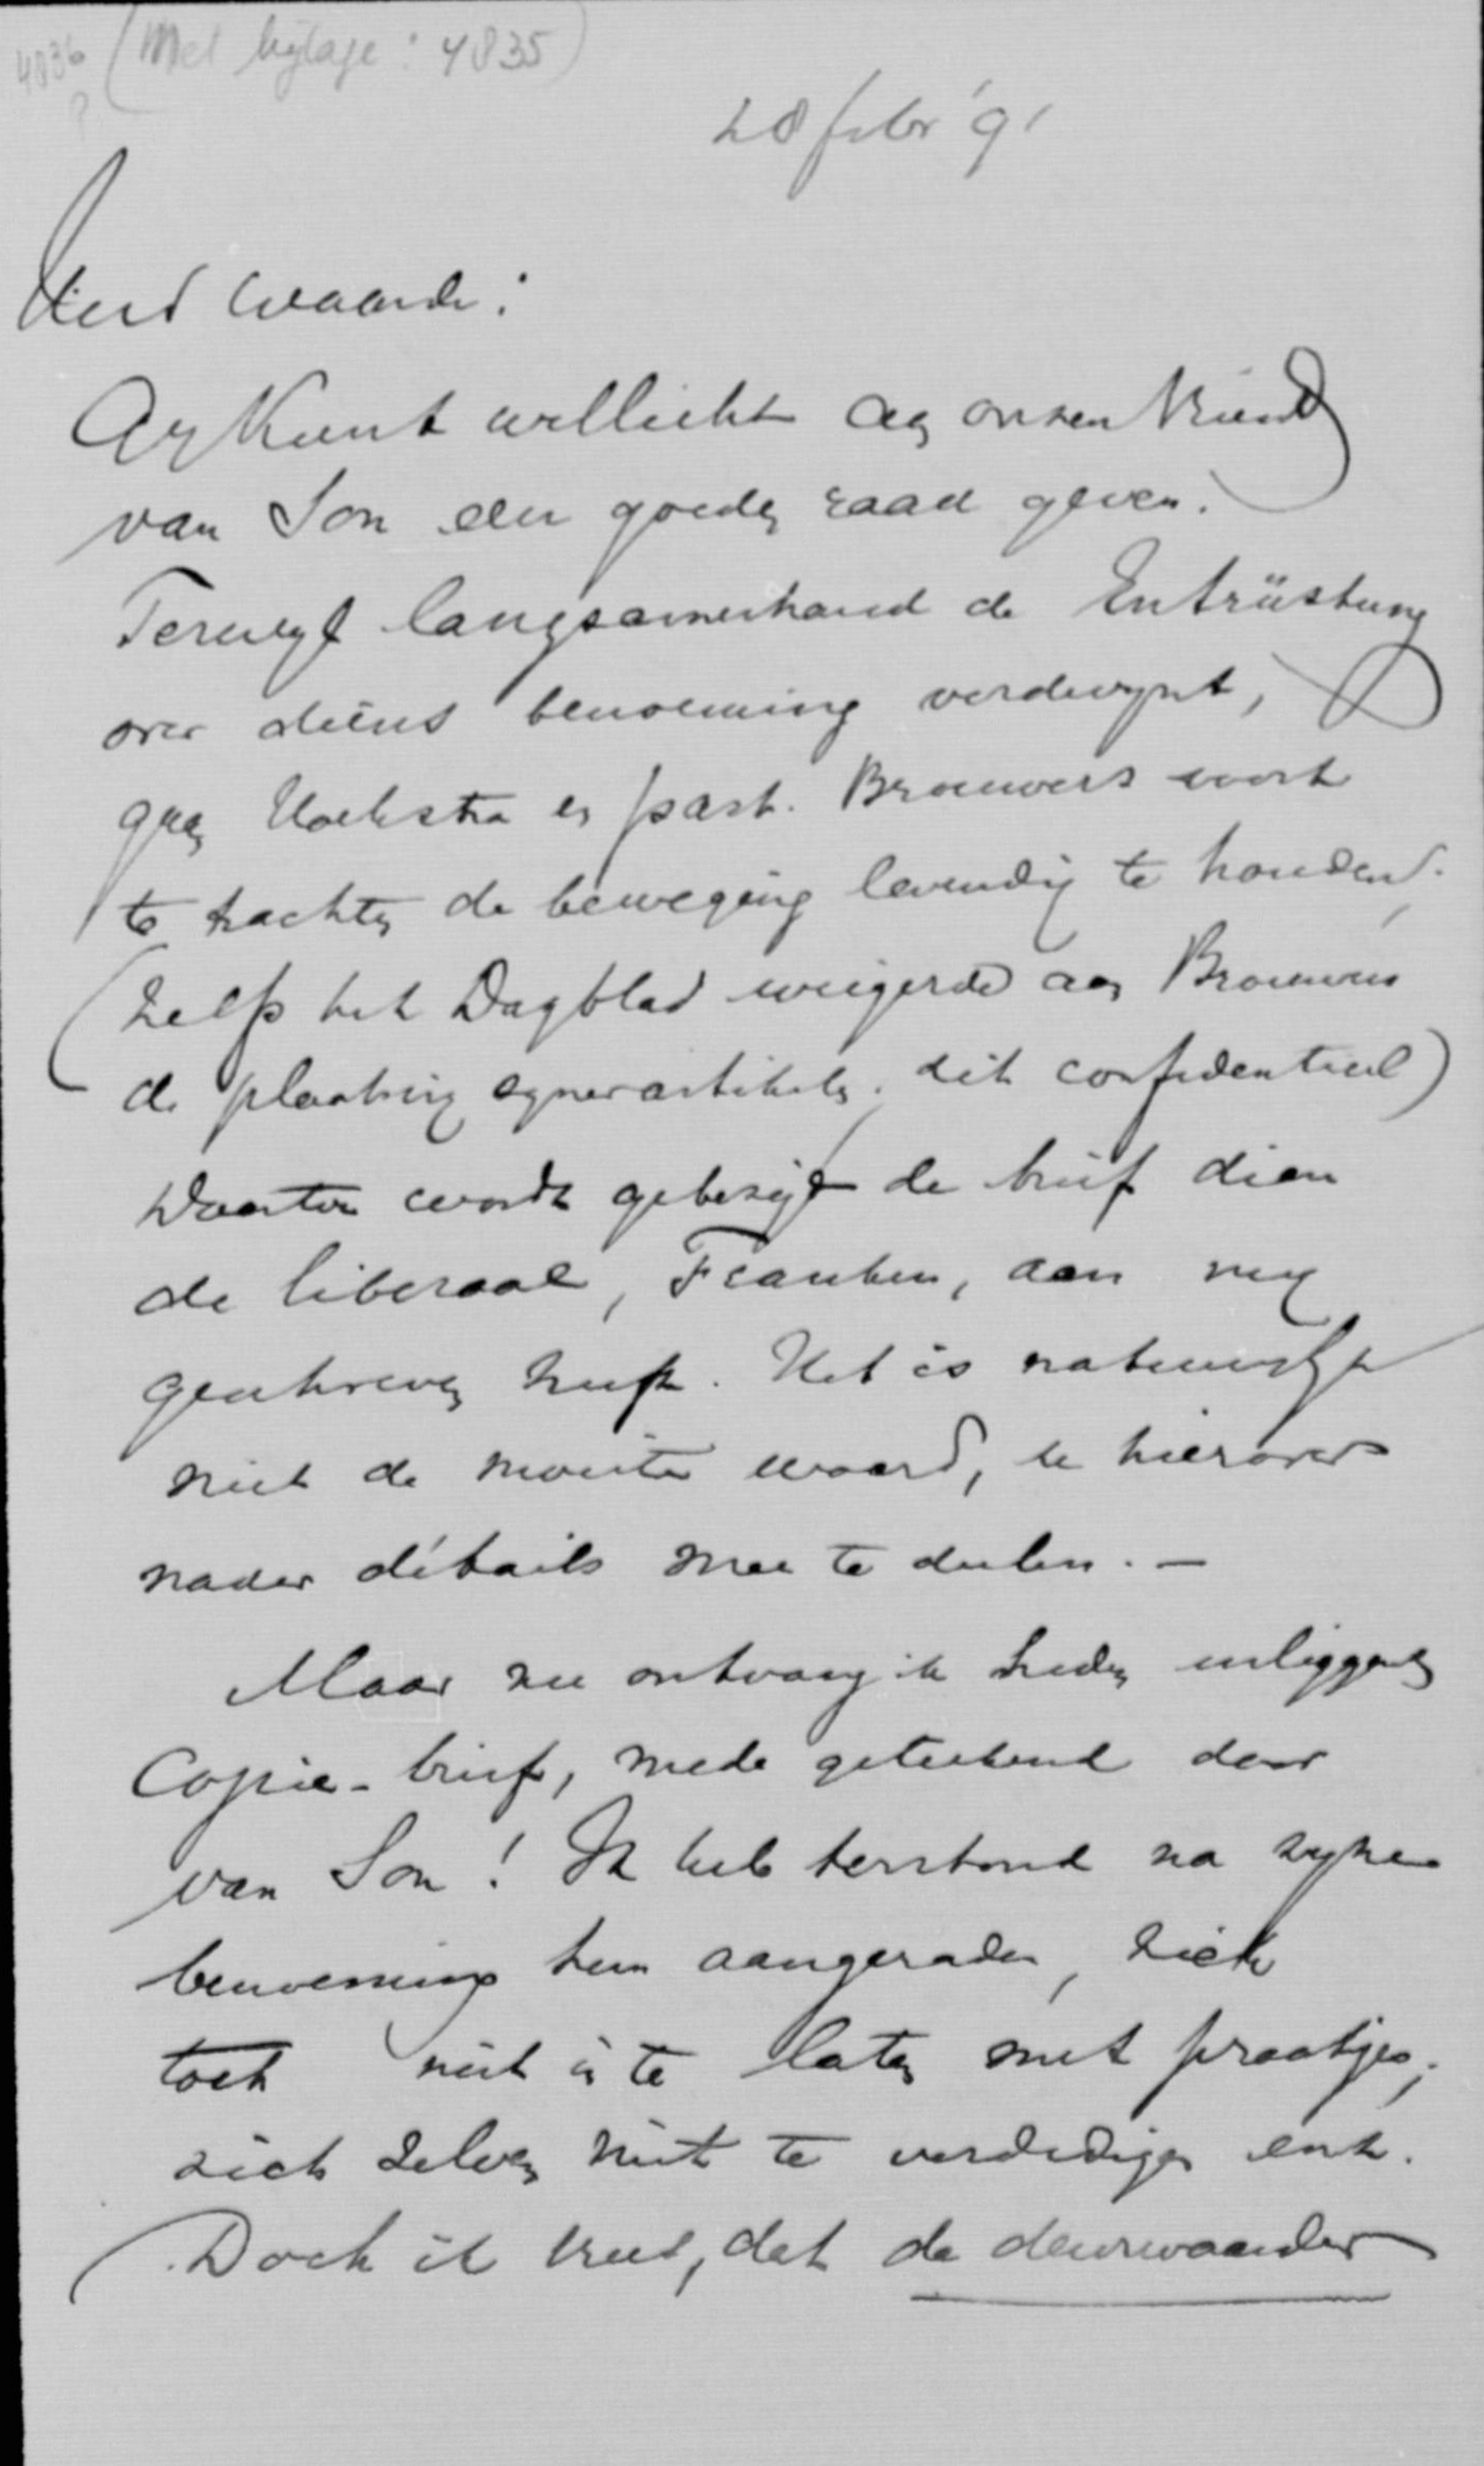 4836 (Met bijlage: 4835)
?
28 febr '91
Waarde:
Gy kunt wellicht aan onzen vriend
van Son een goeden raad geven.
Terwyl langzamerhand de Entrüstung
over diens benoeming verdwynt,
gaan Hoekstra en past. Brouwers voort
te trachten de beweging levendig te houden.
(Zelfs het Dagblad weigerde aan Brouwers
de plaatsing zyner artikels; dit confidentieel)
Daartoe wordt gebezigd de brief dien
de liberaal, Franken, aan my
geschreven heeft. Het is natuurlyk
niet de moeite waard, u hierover
nader détails mee te deelen. —
Maar nu ontvang ik heden inliggenden
Copie-brief, mede geteekend door
van Son! Ik heb terstond na zyne
benoeming hem aangeraden, zich
toch niet in te laten met praatjes;
zich zelven niet te verdedigen enz.
Doch ik vrees, dat de deurwaarder